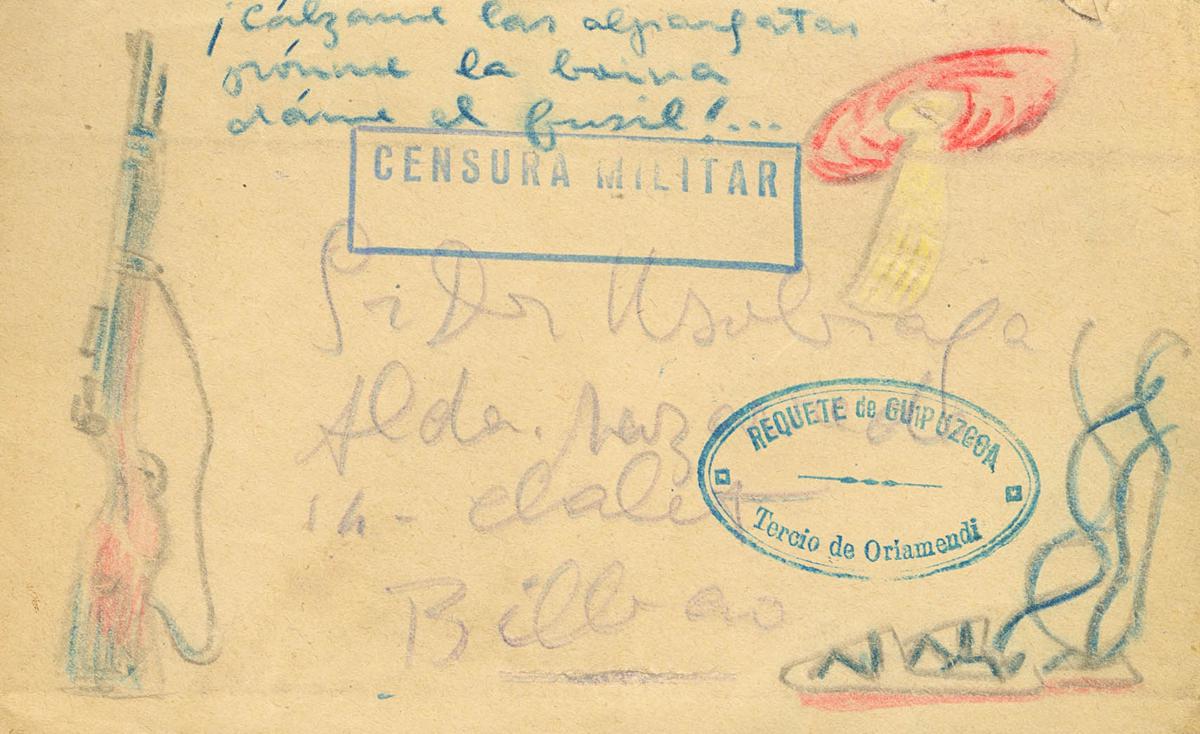 ¡Cálzame las alpargatas
pónme la boina
dáme el fusil!...
CENSURA MILITAR
Sr Dr Usobiaga
Alda.
14 - chalet
REQUETE de GUIPUZCOA
Tercio de Oriamendi
Bilbao